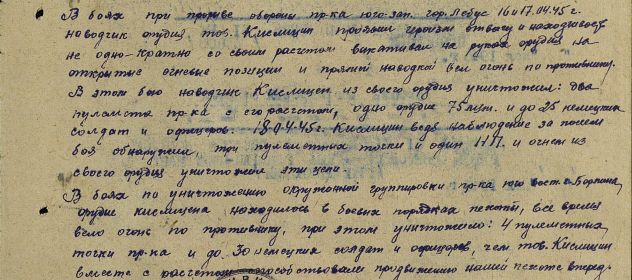 В боях при прорыве обороны пр-ка юго-зап. гор. Лебус 16 и 17.04.45 г.
наводчик орудия тов. Кислицин проявил героизм отвагу и находчивость
не одно-кратно со своим расчетом выкатывал на руках орудия на
открытые огневые позиции и прямой наводкой вел огонь по противнику.
В этом бою наводчик Кислицин из своего орудия уничтожил: два
пулемета пр-ка с его расчетом, одно орудие 75 м/м. и до 25 немецких
солдат и офицеров. 18.04.45 г. Кислицин ведя наблюдение за полем
боя обнаружил три пулеметных точки и один НП. и огнем из
своего орудия уничтожил эти цели
В боях по уничтожению окруженной группировки пр-ка юго вост. г. Берлина,
орудие Кислицина находилось в боевых порядках пехоты, все время
вело огонь по противнику, при этом уничтожено: 4 пулеметных
точки пр-ка и до 30 немецких солдат и офицеров, чем тов. Кислицин
вместе с расчетом способствовали продвижению нашей пехоте вперед.